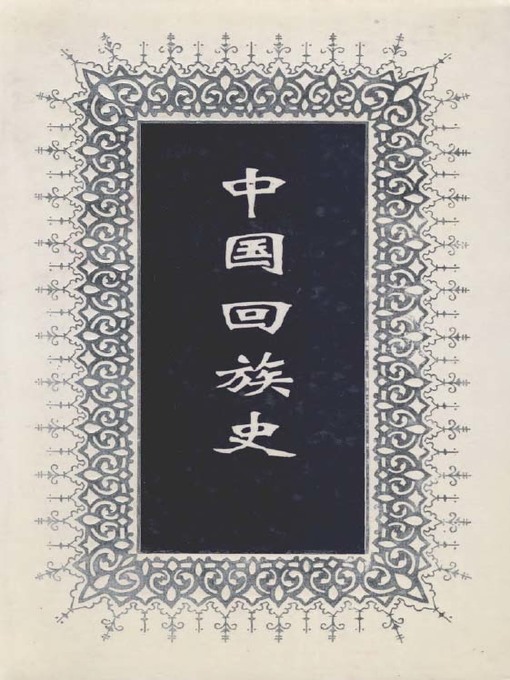 中国回族史